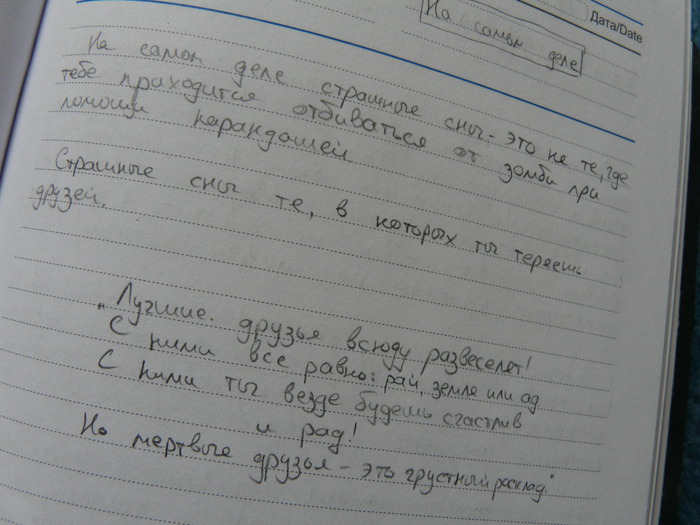 Дата/Date
На самом деле
На самом деле страшные сны - это не те, где
тебе приходится отбиваться от зомби при
помощи карандашей
Страшные сны те, в которых ты теряешь
друзей.
"Лучшие друзья всюду развеселят!
С ними все равно: рай, земле или ад
С ними ты везде будешь счастлив
и рад!
Но мертвые друзья - это грустный расклад."